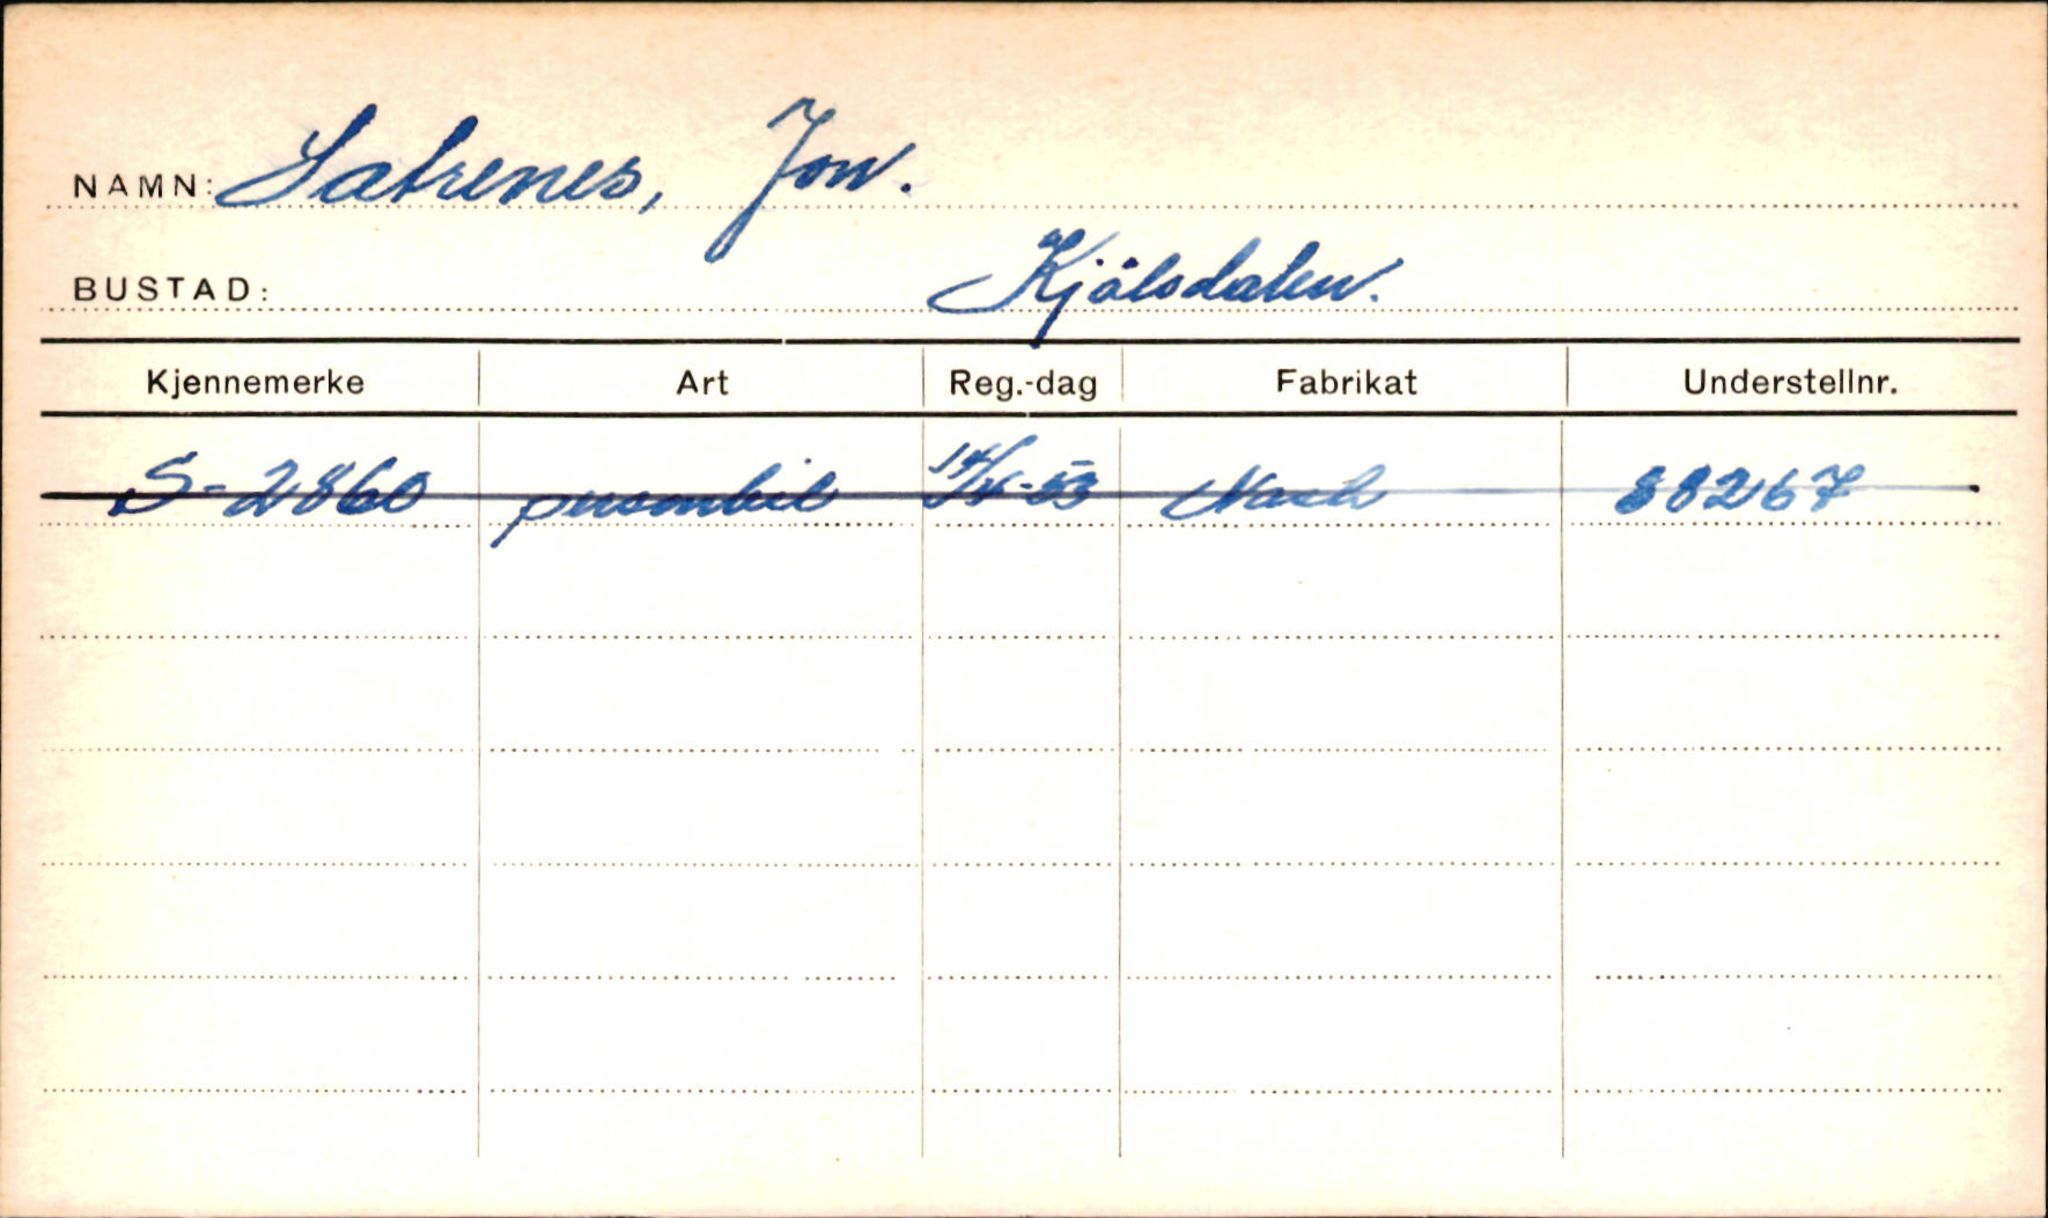 NAMN: Satrenes, Jon.
BUSTAD: Kjölsdalen.
Kjennemerke Art Reg.-dag Fabrikat Understellnr.
S-2860 personbil Nash 38267